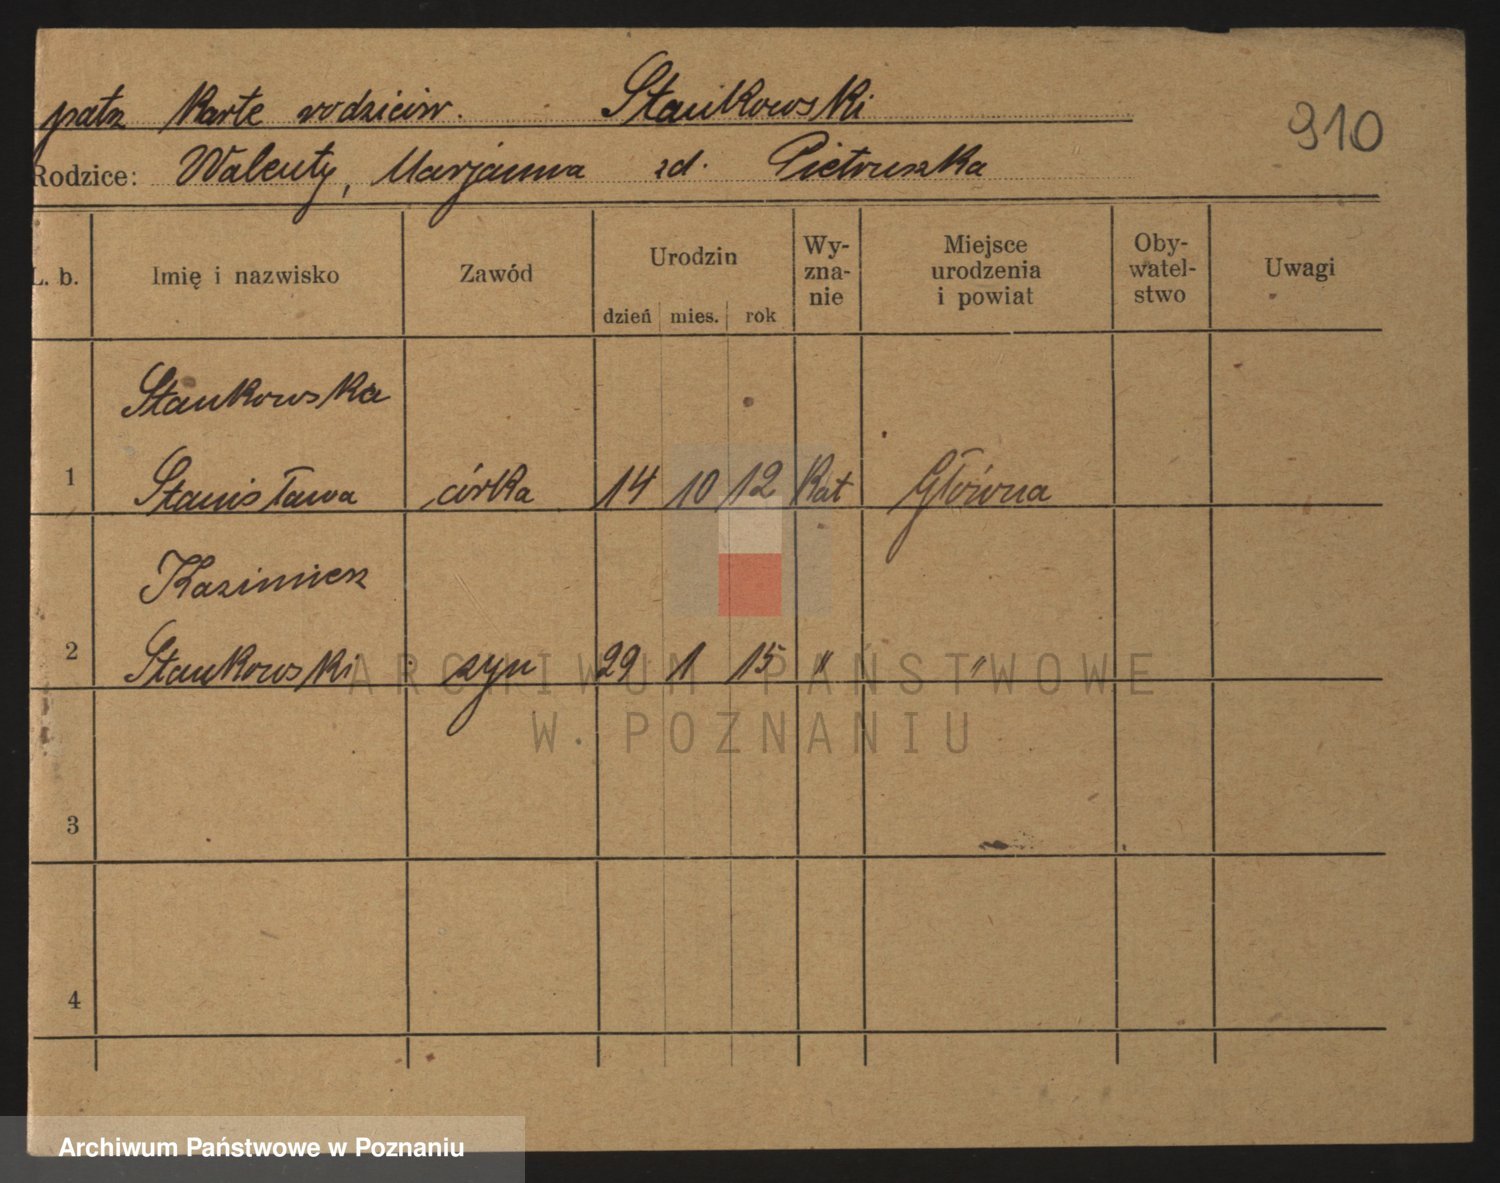 patrz Karte rodziców. Stankowski
910
Rodzice: Walenty, Marjanna zd. Pietruszka
L. b. Imię i nazwisko Zawód Urodzin dzień mies. rok Wy-zna-nie Miejsce urodzenia i powiat Oby-watel-stwo Uwagi
Stankowska
1 Stanisława córka 14 10 12 Kat Główna
Kazimierz
2 Stankowski syn 29 1 15 " "
ARCHIWUM PAŃSTWOWE
W POZNANIU
3
4
Archiwum Państwowe w Poznaniu